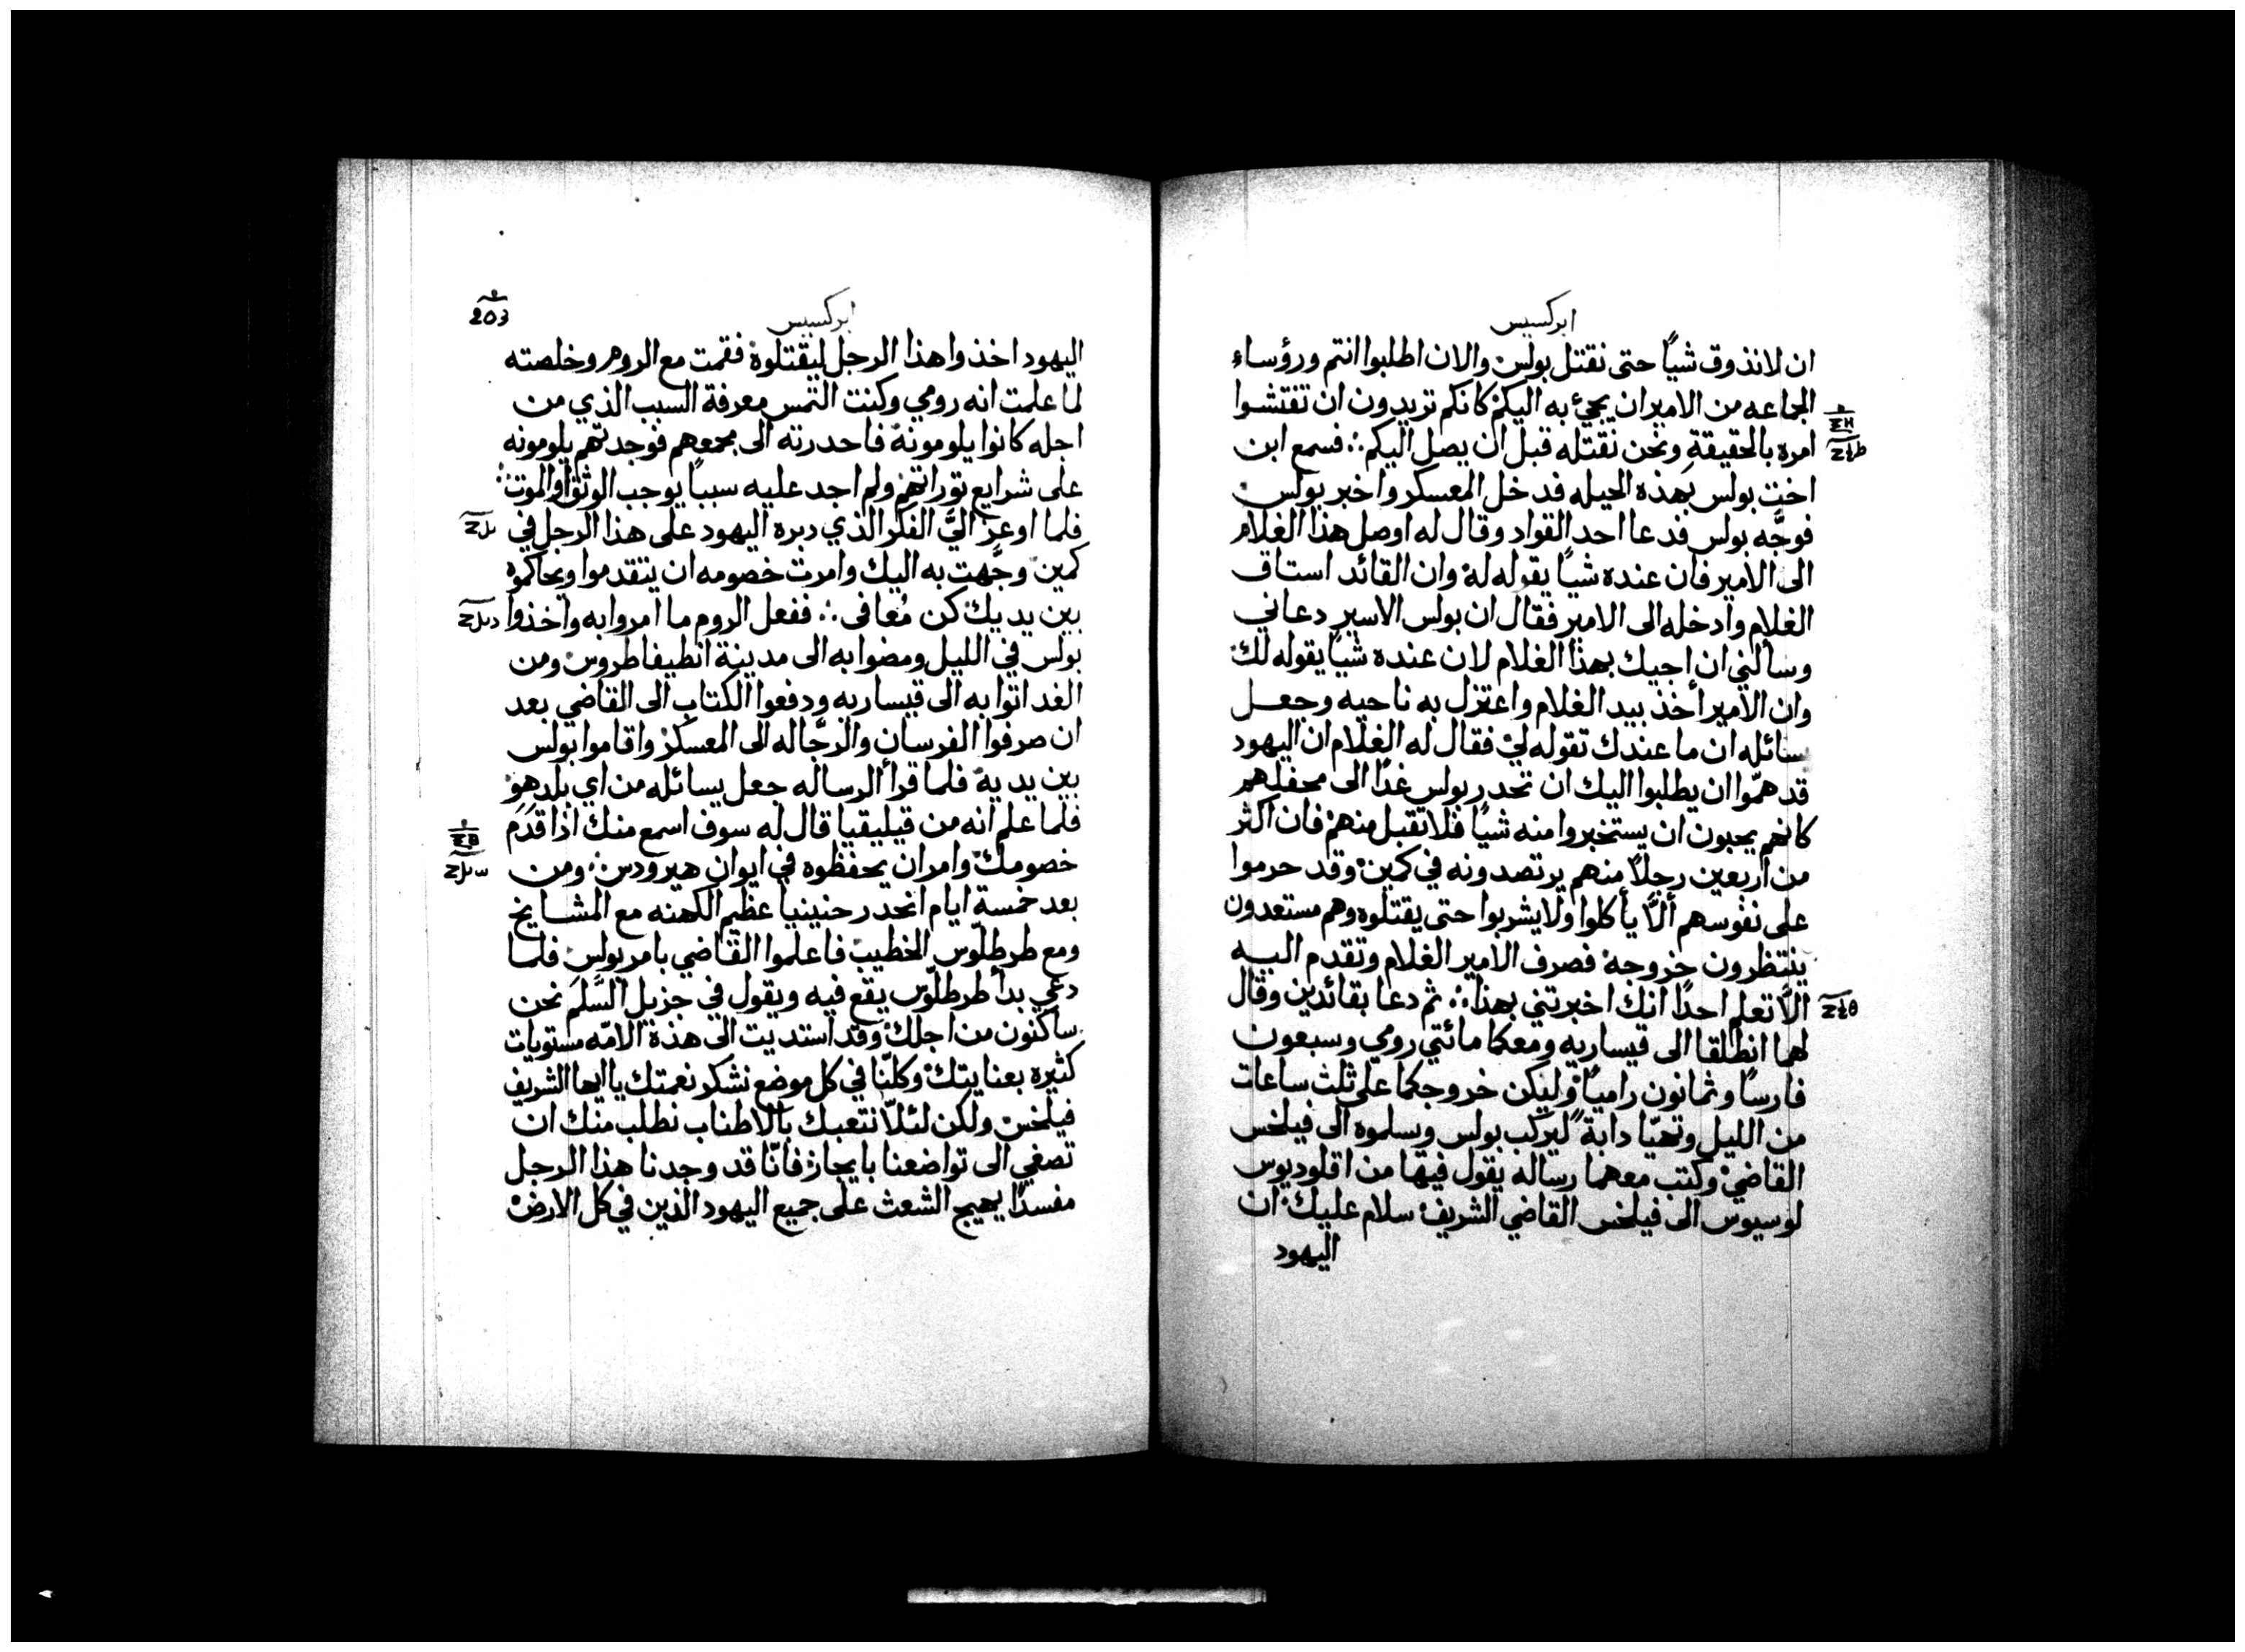 ابركسيس
ان لا نذوق شياً حتى نقتل بولس والان اطلبوا انتم ورؤساء
الجماعه من الامير ان يجئ به اليكم كانكم تريدون ان تفتشوا
امره بالحقيقة ونحن نقتله قبل ان يصل اليكم ؞ فسمع ابن
اخت بولس بهذه الحيله فدخل المعسكر واخبر بولس
فوجَّه بولس فدعا احد القواد وقال له اوصل هذا الغلام
الى الامير فان عنده شياً يقوله له وان القائد استاق
الغلام وادخله الى الامير فقال ان بولس الاسير دعاني
وسالني ان اجيك بهذا الغلام لان عنده شياً يقوله لك
وان الامير أخذ بيد الغلام واعتزل به ناحيه وجعل
يسائله ان ما عندك تقوله لي فقال له الغلام ان اليهود
قد همّوا ان يطلبوا اليك ان تحدر بولس غدًا الى محفلهم
كانهم يحبون ان يستخبروا منه شياً فلا تقبل منهم فان اكثر
من اربعين رجلاً منهم يرتصدونه في كمين وقد حرموا
على نفوسهم ألاّ يأكلوا ولا يشربوا حتى يقتلوه وهم مستعدون
ينتظرون خروجه فصرف الامير الغلام وتقدم اليه
الاّ تعلم احدًا انك اخبرتني بهذا ؞ ثم دعا بقائدين وقال
لهما انطلقا الى قيساريه ومعكما مائتي رومي وسبعون
فارسًا وثمانون رامياً وليكن خروجكما على ثلث ساعات
من الليل وتهيّا دابة ليركب بولس ويسلموه الى فيلخس
القاضي وكتب معهما رساله يقول فيها من اقلوديوس
لوسيوس الى فيلخس القاضي الشريف سلام عليك ان
اليهود
203
ابركسيس
اليهود اخذوا هذا الرجل ليقتلوه فقمت مع الروم وخلصته
لما علمت انه رومي وكنت التمس معرفة السبب الذي من
اجله كانوا يلومونه فاحدرته الى مجمعهم فوجدتهم يلومونه
على شرايع توراتهم ولم اجد عليه سبباً يوجب الوثق او الموت
فلما اوعز اليَّ الفكر الذي دبره اليهود على هذا الرجل في
كمين وجَّهت به اليك وامرت خصومه ان يتقدموا ويحاكموه
بين يديك كن مُعافى ؞ ففعل الروم ما امروا به واخذوا
بولس في الليل ومضوا به الى مدينة انطيفاطروس ومن
الغد اتوا به الى قيساريه ودفعوا الكتاب الى القاضي بعد
ان صرفوا الفرسان والرجّاله الى المعسكر واقاموا بولس
بين يديه فلما قرأ الرساله جعل يسائله من اي بلد هو
فلما علم انه من قيليقيا قال له سوف اسمع منك اذا قدم
خصومك وامر ان يحفظوه في ايوان هيرودس ومن
بعد خمسة ايام انحدر حنينيا عظيم الكهنه مع المشايخ
ومع طرطلّوس الخطيب فاعلموا القاضي بامر بولس فلما
دعي بدأ طرطلّوس يقع فيه ويقول في جزيل السَّلَم نحن
ساكنون من اجلك وقد استديت الى هذه الامّه مستويات
كثيره بعنايتك وكلنّا في كل موضع نشكر نعمتك يا ايها الشريف
فيلخس ولكن لئلاّ نتعبك بالاطناب نطلب منك ان
تصغي الى تواضعنا بايجاز فانّا قد وجدنا هذا الرجل
مفسدًا يهيج الشعث على جميع اليهود الذين في كل الارض